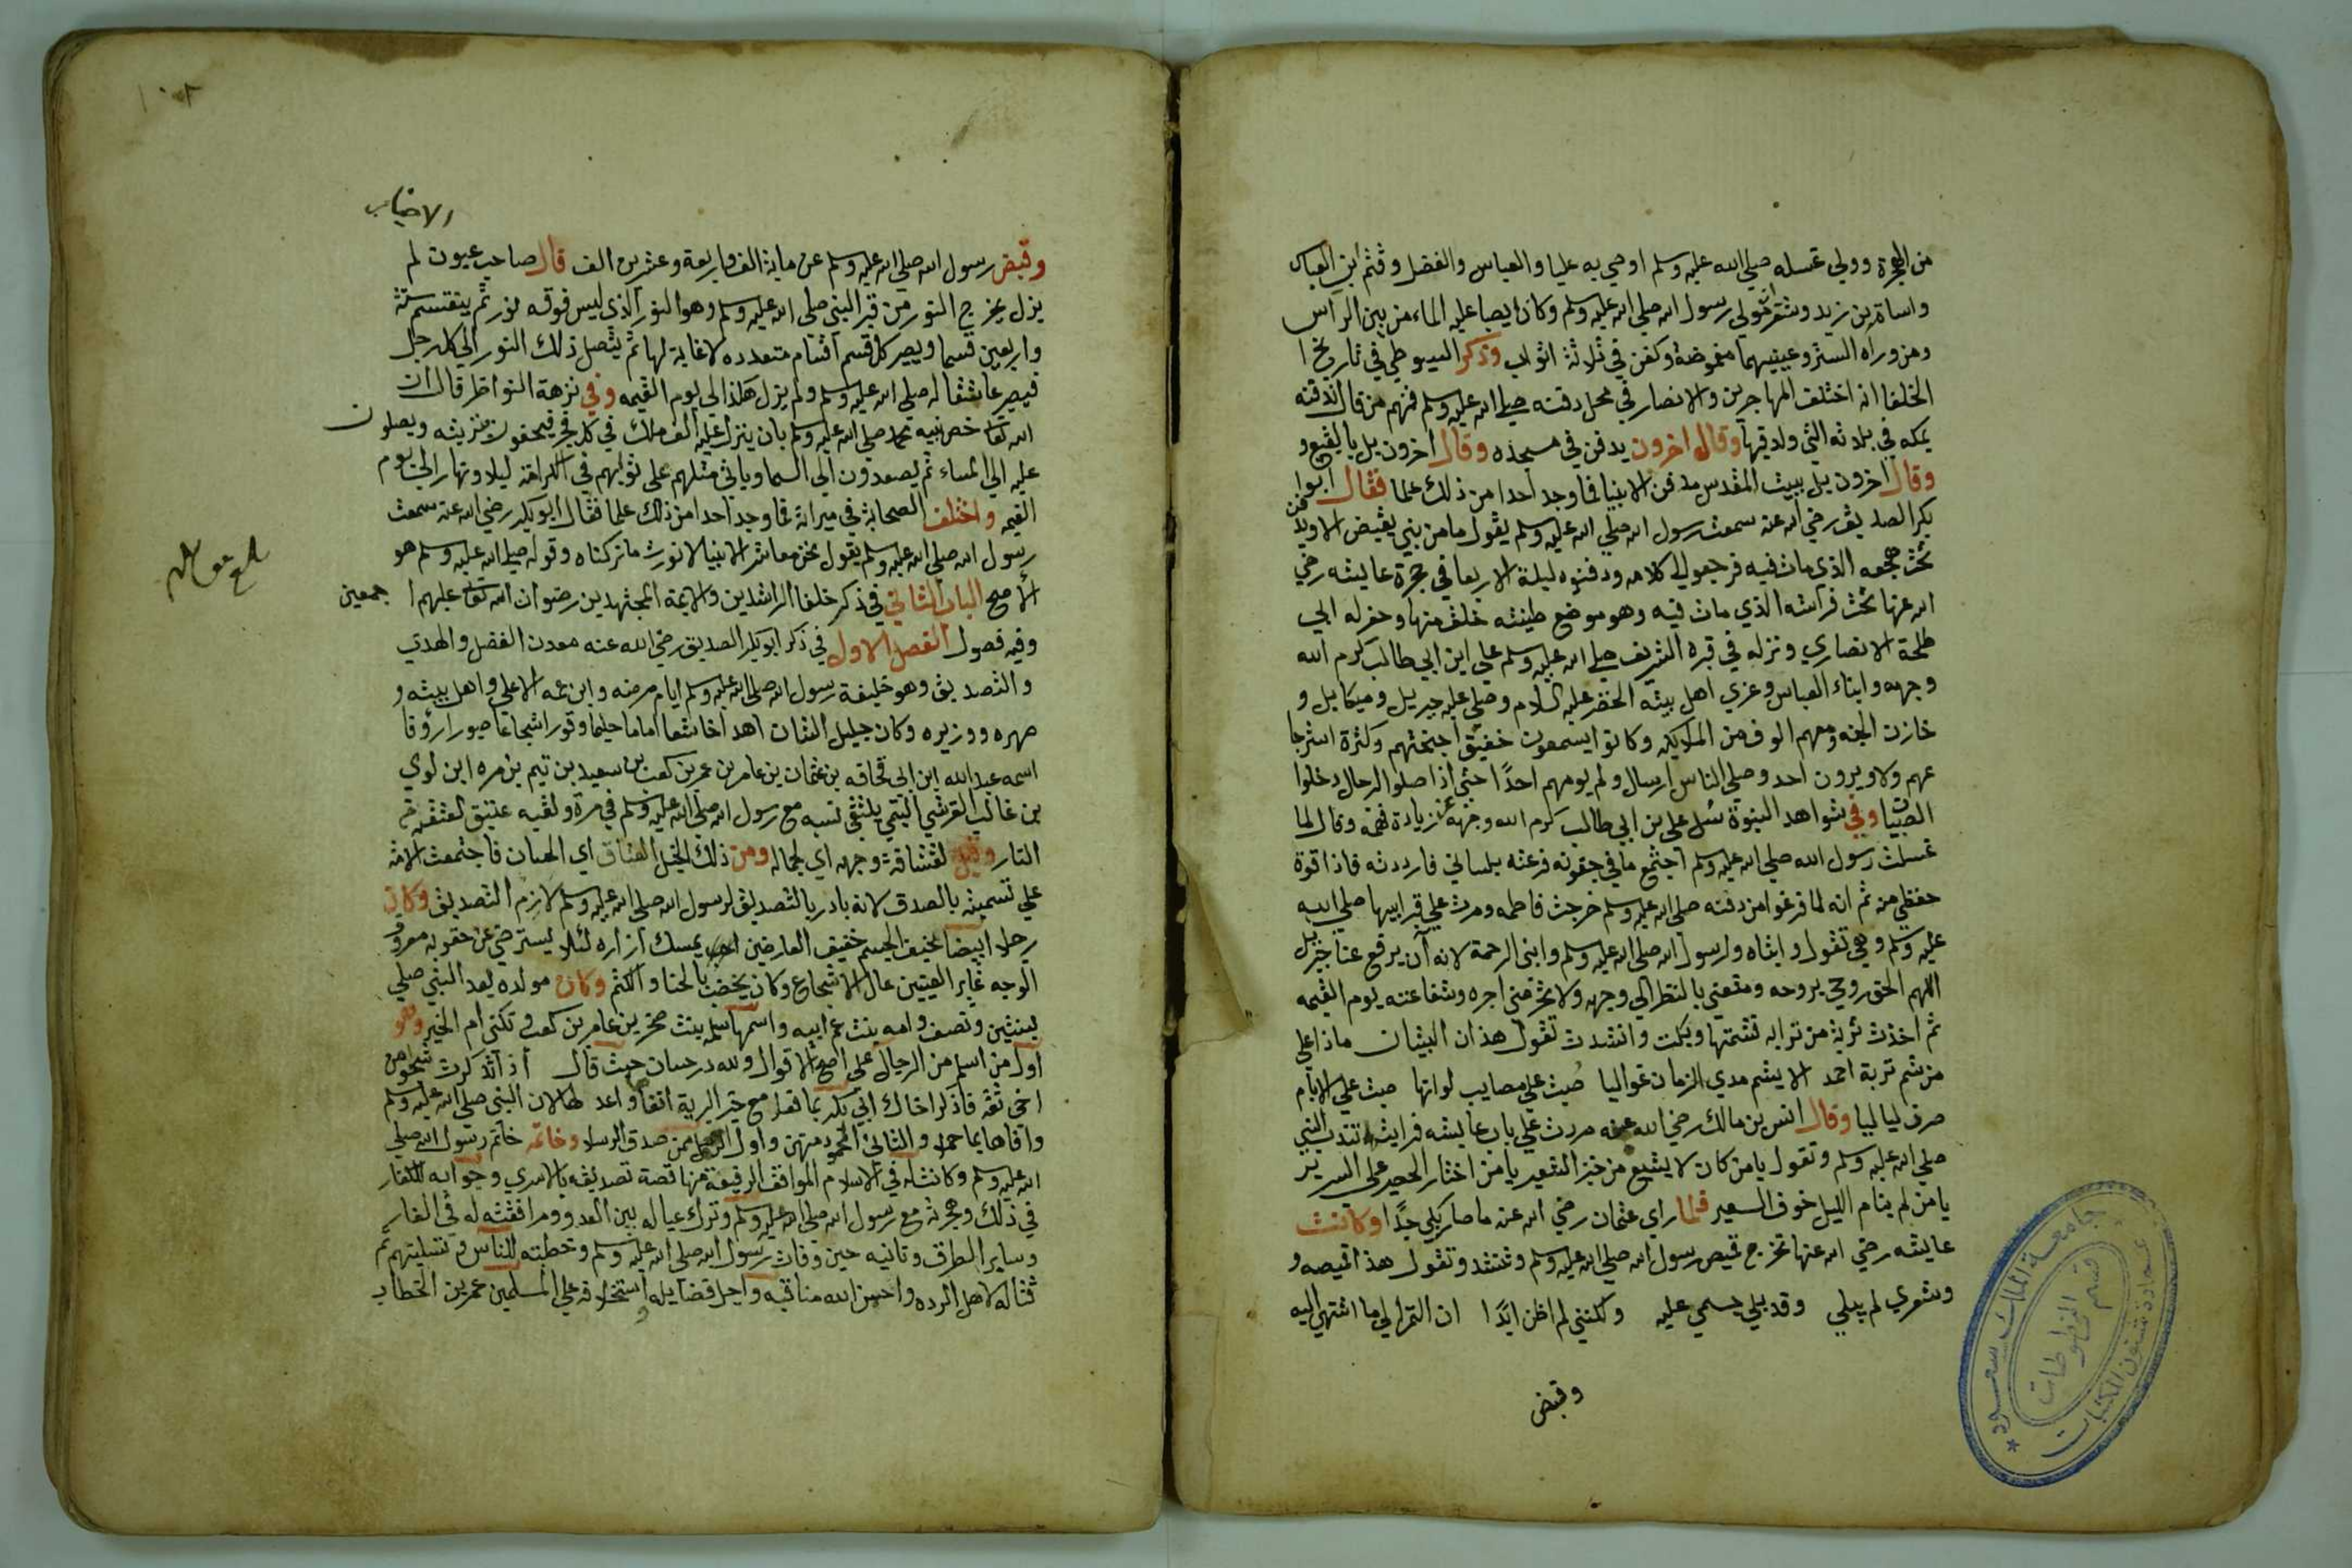 من الهجرة وولي غسله صلى الله عليه وسلم اوصي به عليا والعباس والفضل وقثم ابن العباس
واسامة بن زيد وشقران مولي رسول الله صلى الله عليه وسلم وكان يصبا عليه الماء من بين الراس
ومن وراه الستر وعينيهما مغموضة وكفن في ثلاثة اثواب وذكر السيوطي في تاريخ ا
الخلفا انه اختلف المهاجرين والانصار في محل دفنه صلى الله عليه وسلم فمنهم من قال ندفنه
بمكه في بلدته التي ولد فيها وقال اخرون يدفن في مسجده وقال اخرون بل بالبقيع و
وقال اخرون بل ببيت المقدس مدفن الانبيا فما وجد احدا من ذلك علما فقال ابوا
بكر الصديق رضي الله عنه سمعت رسول الله صلى الله عليه وسلم يقول ما من نبي يقبض الا ويدفن
تحت مضجعه الذي مات فيه فرجعوا الي كلامه ودفنوه ليلة الاربعا في حجرة عايشه رضي
الله عنها تحت فراشه الذي مات فيه وهو موضع طينته خلق منها وحفر له ابي
طلحة الانصاري ونزله في قبره الشريف صلى الله عليه وسلم علي ابن ابي طالب كرم الله
وجهه وابناء العباس وعزي اهل بيته الخضر عليه السلام وصلي عليه جبريل وميكايل و
خازن الجنه ومعهم الوف من الملايكه وكانوا يسمعون خفيق اجنحتهم وكثرة استرجا
عهم ولا ويرون احد وصلي الناس ارسال ولم يومهم احدا حتي اذا صلوا الرجال دخلوا
الصبيان وفي شواهد النبوة سئل علي بن ابي طالب كرم الله وجهه عن زيادة فهمه وقال لما
غسلت رسول الله صلى الله عليه وسلم اجتمع ما في جفونه فرفعته بلساني فازددته فاذا قوة
حفظي منه ثم انه لما فرغوا من دفنه صلى الله عليه وسلم خرجت فاطمه ومرت علي قبر ابيها صلى الله
عليه وسلم وهي تقول وابتاه وارسول الله صلى الله عليه وسلم وابني الرحمة لانه آن يرفع عنا جبريل
اللهم الحق روحي بروحه ومتعني بالنظر الي وجهه ولا تحرمني اجره وشفاعته يوم القيمه
ثم اخذت تربة من ترابه فشمتها وبكت وانشدت تقول هذان البيتان ماذا علي
من شم تربة احمد الا يشم مدي الزمان غواليا صبت علي مصايب لو انها صبت علي الايام
صرن لياليا وقال انس بن مالك رضي الله عنه مررت علي باب عايشه فرايتها تندب النبي
صلى الله عليه وسلم وتقول يا من كان لا يشبع من خبز الشعير يا من اختار الحصير علي السرير
يا من لم ينام الليل خوف السعير فلما راي عثمان رضي الله عنه ما صار بكي جدًا وكانت
عايشه رضي الله عنها تخرج قميص رسول الله صلى الله عليه وسلم وتنشد وتقول هذا قميصه و
وشعري لم يبلي وقد بلي جسمي عليه ولكنني لم اظن ابدًا ان الثرا الي ما اشتهي اليه
وقبض
جامعة الملك سعود
عمادة شئون المكتبات
قسم المخطوطات
١٠٨
وقبض رسول الله صلى الله عليه وسلم عن ماية الف واربعة وعشرين الف قال صاحب عيون لم
يزل يخرج النور من قبر النبي صلى الله عليه وسلم وهو النور الذي ليس فوقه نور ثم ينقسم ستة
واربعين قسما ويصير كل قسم اقسام متعدده لا غاية لها ثم يتصل ذلك النور الي كل رجل
فيصير عاشقا له صلى الله عليه وسلم ولم يزل هكذا الي يوم القيمه وفي نزهة النواظر قال ان
الله تعالى خص نبيه محمد صلى الله عليه وسلم بان ينزل عليه الف ملك في كل فجر فيحفون بتربته ويصلون
عليه الي المساء ثم يصعدون الي السما وياتي مثلهم علي نوابهم في الكرامة ليلا ونهار الي يوم
القيمه واختلف الصحابة في ميراثه فما وجد احدا من ذلك علما فقال ابو بكر رضي الله عنه سمعت
رسول الله صلى الله عليه وسلم يقول نحن معاشر الانبيا لا نورث ما تركناه وقوله صلى الله عليه وسلم هو
الاصح الباب الثاني في ذكر خلفا الراشدين والايمة المجتهدين رضوان الله تعالى عليهم ا جمعين
وفيه فصول الفصل الاول في ذكر ابو بكر الصديق رضي الله عنه معدن الفضل والهدي
والتصديق وهو خليفة رسول الله صلى الله عليه وسلم ايام مرضه وابن عمه الاعلي واهل بيته و
صهره ووزيره وكان جليل الشان اهدا خاشعا اماما حليما وقورا شجاعا صبورا رؤفا
اسمه عبد الله ابن ابي قحافه بن عثمان بن عامر بن عمر بن كعب بن سعيد بن تيم بن مره ابن لوي
بن غالب القرشي التيمي يلتقي نسبه مع رسول الله صلى الله عليه وسلم في مرة ولقبه عتيق لعتقه من
النار وقيل لعتاقة وجهه اي لجماله ومن ذلك الخيل العتاق اي الحسان فاجتمعت الامة
علي تسميته بالصدق لانه بادر بالتصديق لرسول الله صلى الله عليه وسلم لازم التصديق وكان
رجلا ابيضا نحيف الجسم خفيف العارضين يمسك ازاره لئلا يسترخي عن حقويه معروق
الوجه غاير العينين عال الاشجاع وكان يخضب بالحنا والكتم وكان مولده بعد النبي صلي
بسنتين ونصف وامه بنت عم ابيه واسمها سلمه بنت صخر بن عامر بن كعب وتكني ام الخير وهو
اول من اسلم من الرجال علي اصح الاقوال ولله در حسان حيث قال اذا تذكرت شجوا من
اخي ثقة فاذكر اخاك ابي بكر بما فعلا مع خير البرية اتقاها واعدلها الان النبي صلى الله عليه وسلم
واوفاها بما حملا والثاني المحمود منهن واول الرجل من صدق الرسلا وخاتمه خاتم رسول الله صلي
الله عليه وسلم وكانت له في الاسلام المواقف الرفيعة منها قصة تصديقه بالاسري وجوابه للكفار
في ذلك وهجرته مع رسول الله صلى الله عليه وسلم وترك عياله بين العدو ومرافقته له في الغار
وساير الطرق وثانيه حين وفات رسول الله صلى الله عليه وسلم وخطبته للناس وتسليتهم ثم
قتاله لاهل الرده واحسن الله مناقبه واجل فضايله استخلافه علي المسلمين عمر بن الخطاب